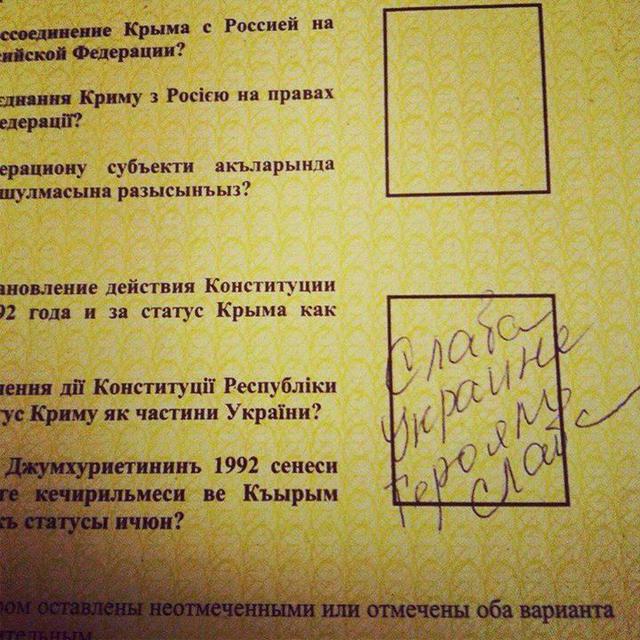 ссоединение Крыма с Россией на
сийской Федерации?
єднання Криму з Росією на правах
едерації?
ерациону субъекти акъларында
шулмасына разысынъыз?
ановление действия Конституции
92 года и за статус Крыма как
лення дії Конституції Республіки
ус Криму як частини України?
Джумхуриетининъ 1992 сенеси
ге кечирильмеси ве Къырым
къ статусы ичюн?
Слава
Украине
Героям
Слава
ром оставлены неотмеченными или отмечены оба варианта
ительным